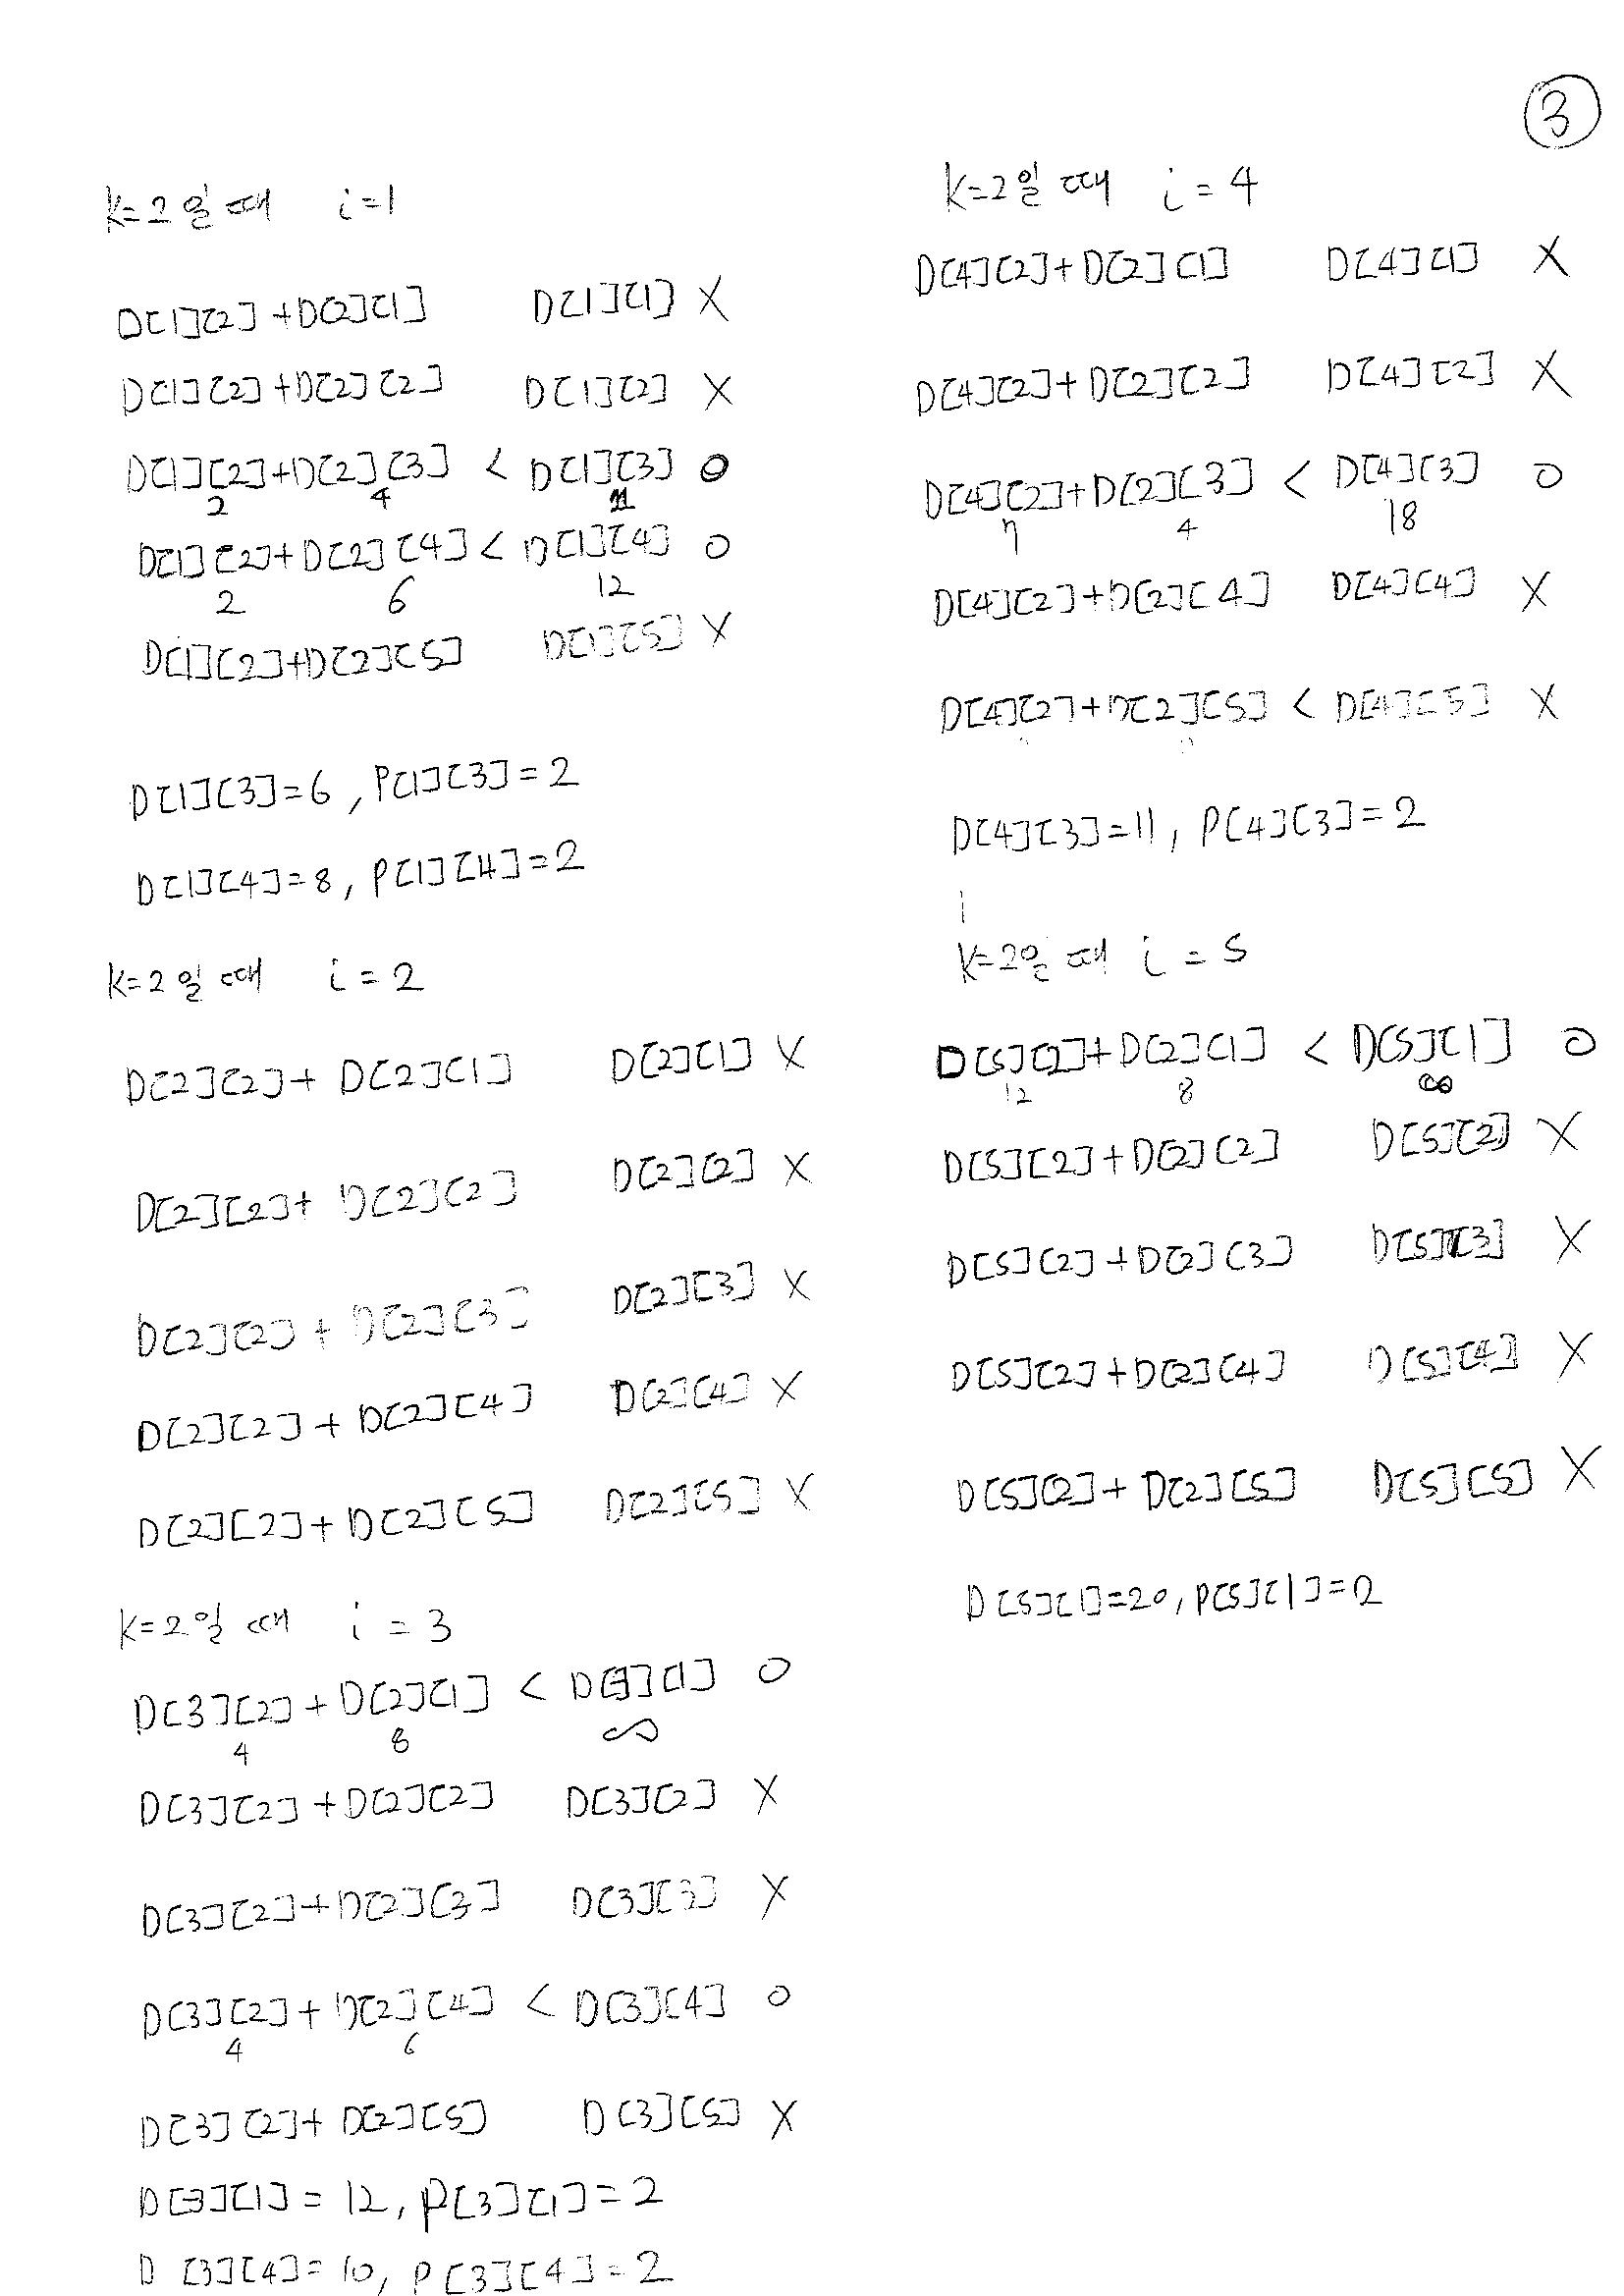 ③
k=2일 때 i=1
D[1][2]+D[2][1] D[1][1] X
D[1][2]+D[2][2] D[1][2] X
D[1][2]+D[2][3] < D[1][3] O
2 4 11
D[1][2]+D[2][4] < D[1][4] O
2 6 12
D[1][2]+D[2][5] D[1][5] X
D[1][3]=6, P[1][3]=2
D[1][4]=8, P[1][4]=2
k=2일 때 i=2
D[2][2]+D[2][1] D[2][1] X
D[2][2]+D[2][2] D[2][2] X
D[2][2]+D[2][3] D[2][3] X
D[2][2]+D[2][4] D[2][4] X
D[2][2]+D[2][5] D[2][5] X
k=2일 때 i=3
D[3][2]+D[2][1] < D[3][1] O
4 8 ∞
D[3][2]+D[2][2] D[3][2] X
D[3][2]+D[2][3] D[3][3] X
D[3][2]+D[2][4] < D[3][4] O
4 6
D[3][2]+D[2][5] D[3][5] X
D[3][1]=12, P[3][1]=2
D[3][4]=10, P[3][4]=2
k=2일 때 i=4
D[4][2]+D[2][1] D[4][1] X
D[4][2]+D[2][2] D[4][2] X
D[4][2]+D[2][3] < D[4][3] O
7 4 18
D[4][2]+D[2][4] D[4][4] X
D[4][2]+D[2][5] < D[4][5] X
D[4][3]=11, P[4][3]=2
k=2일 때 i=5
D[5][2]+D[2][1] < D[5][1] O
12 8 ∞
D[5][2]+D[2][2] D[5][2] X
D[5][2]+D[2][3] D[5][3] X
D[5][2]+D[2][4] D[5][4] X
D[5][2]+D[2][5] D[5][5] X
D[5][1]=20, P[5][1]=2